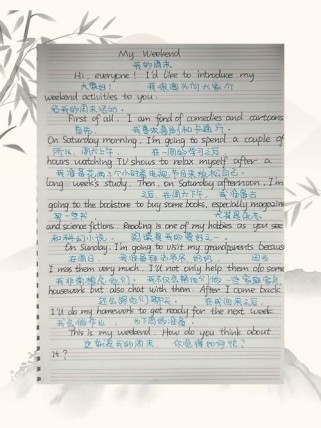 My Weekend
我的周末
Hi, everyone! I'd like to introduce my
大家好! 我很高兴向大家介
weekend activities to you.
绍我的周末活动。
First of all, I am fond of comedies and cartoons
首先, 我喜欢喜剧和卡通片,
On Saturday morning, I'm going to spend a couple of
所以, 周六上午 在一周的学习之后
hours watching TV shows to relax myself after a
我准备花两三个小时看电视节目来放松自己。
long week's study. Then, on Saturday afternoon, I'm
之后, 在周六下午, 我准备去
going to the bookstore to buy some books, especially magazines
买一些书 尤其是杂志,
and science fictions. Reading is one of my hobbies as you see
和科幻小说, 阅读是我的爱好之一
On Sunday, I'm going to visit my grandparents because
在周日, 我准备拜访爷爷奶奶, 因为
I miss them very much. I'll not only help them do some
我非常想念他们。 我不仅会帮他们做一些家庭家务
housework but also chat with them. After I come back
还会跟他们聊天。 在我回来之后,
I'll do my homework to get ready for the next week
我会做作业, 为下周做准备。
This is my weekend. How do you think about
这就是我的周末, 你觉得如何呢?
it?